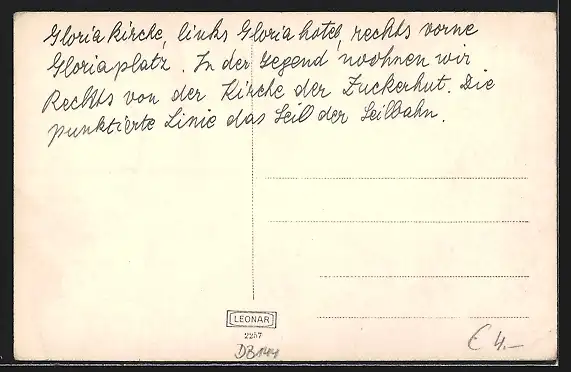 Gloriakirche, links Gloriahotel, rechts vorne
Gloriaplatz. In der Gegend wohnen wir
Rechts von der Kirche der Zuckerhut. Die
punktierte Linie das Seil der Seilbahn.
LEONAR
2257
DB144
€ 4.-